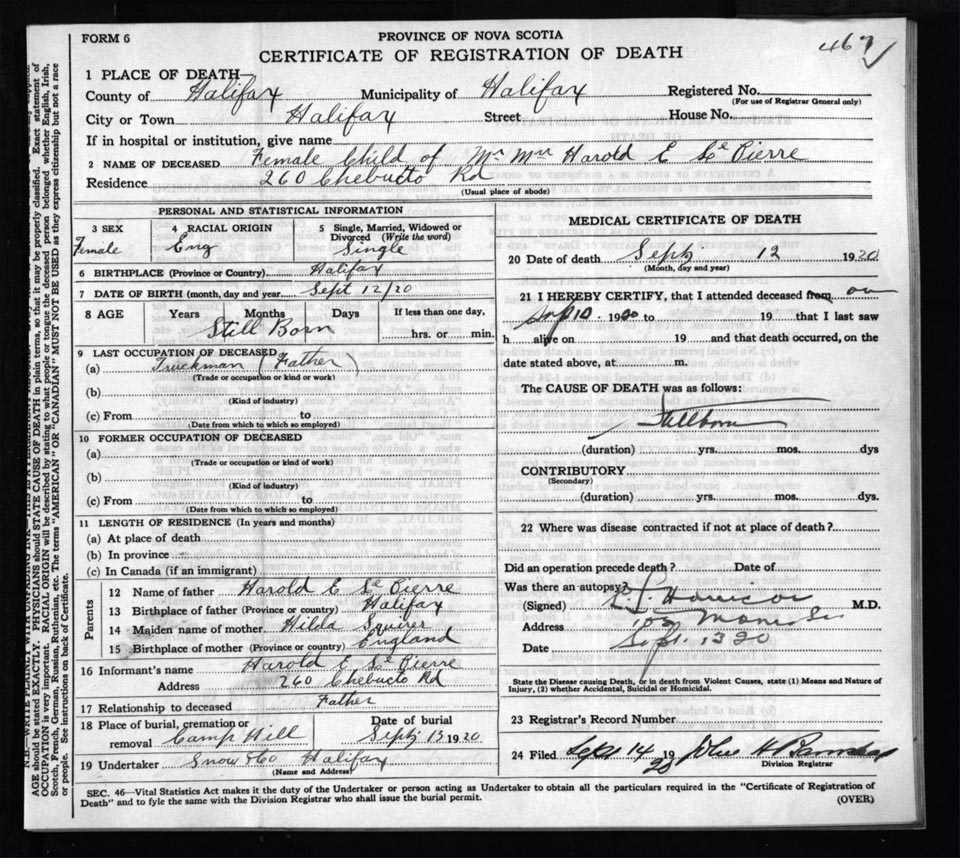 FORM 6
PROVINCE OF NOVA SCOTIA
CERTIFICATE OF REGISTRATION OF DEATH
467
1 PLACE OF DEATH
County of Halifax Municipality of Halifax Registered No.
(For use of Registrar General only)
City or Town Halifax Street House No.
If in hospital or institution, give name
2 NAME OF DECEASED Female Child of Mr Mrs Harold E Le Pierre
Residence 260 Chebucto Rd
(Usual place of abode)
PERSONAL AND STATISTICAL INFORMATION
3 SEX Female
4 RACIAL ORIGIN Eng
5 Single, Married, Widowed or Divorced (Write the word) Single
6 BIRTHPLACE (Province or Country) Halifax
7 DATE OF BIRTH (month, day and year) Sept 12/20
8 AGE Years Months Days If less than one day,
Still Born hrs. or min.
9 LAST OCCUPATION OF DECEASED
(a) Truckman (Father)
(Trade or occupation or kind or work)
(b)
(Kind of industry)
(c) From to
(Date from which to which so employed)
10 FORMER OCCUPATION OF DECEASED
(a)
(Trade or occupation or kind of work)
(b)
(Kind of industry)
(c) From to
(Date from which to which so employed)
11 LENGTH OF RESIDENCE (In years and months)
(a) At place of death
(b) In province
(c) In Canada (if an immigrant)
Parents
12 Name of father Harold E Le Pierre
13 Birthplace of father (Province or country) Halifax
14 Maiden name of mother Hilda Squires
15 Birthplace of mother (Province or country) England
16 Informant's name Harold E Le Pierre
Address 260 Chebucto Rd
17 Relationship to deceased Father
18 Place of burial, cremation or removal Camp Hill
Date of burial Sept 13 1920
19 Undertaker Snow & Co Halifax
(Name and Address)
MEDICAL CERTIFICATE OF DEATH
20 Date of death Sept 12 1920
(Month, day and year)
21 I HEREBY CERTIFY, that I attended deceased from on
1920 to 19 that I last saw
h alive on 19 and that death occurred, on the
date stated above, at m.
The CAUSE OF DEATH was as follows:
Stillborn
(duration) yrs. mos. dys
CONTRIBUTORY
(Secondary)
(duration) yrs. mos. dys.
22 Where was disease contracted if not at place of death?
Did an operation precede death? Date of
Was there an autopsy?
(Signed) M.D.
Address
Date Sept. 13 20
State the Disease causing Death, or in death from Violent Causes, state (1) Means and Nature of
Injury, (2) whether Accidental, Suicidal or Homicidal.
23 Registrar's Record Number
24 Filed Sept 14 1920
Division Registrar
SEC. 46—Vital Statistics Act makes it the duty of the Undertaker or person acting as Undertaker to obtain all the particulars required in the "Certificate of Registration of
Death" and to fyle the same with the Division Registrar who shall issue the burial permit.
(OVER)
AGE should be stated EXACTLY. PHYSICIANS should STATE CAUSE OF DEATH in plain terms, so that it may be properly classified. Exact statement of
OCCUPATION is very important. RACIAL ORIGIN will be described by stating to what people or tongue the deceased person belonged whether English, Irish,
Scotch, French, German, Russian, Ruthenian, etc. The terms "AMERICAN" OR "CANADIAN" MUST NOT BE USED as they express citizenship but not a race
or people. See instructions on back of Certificate.